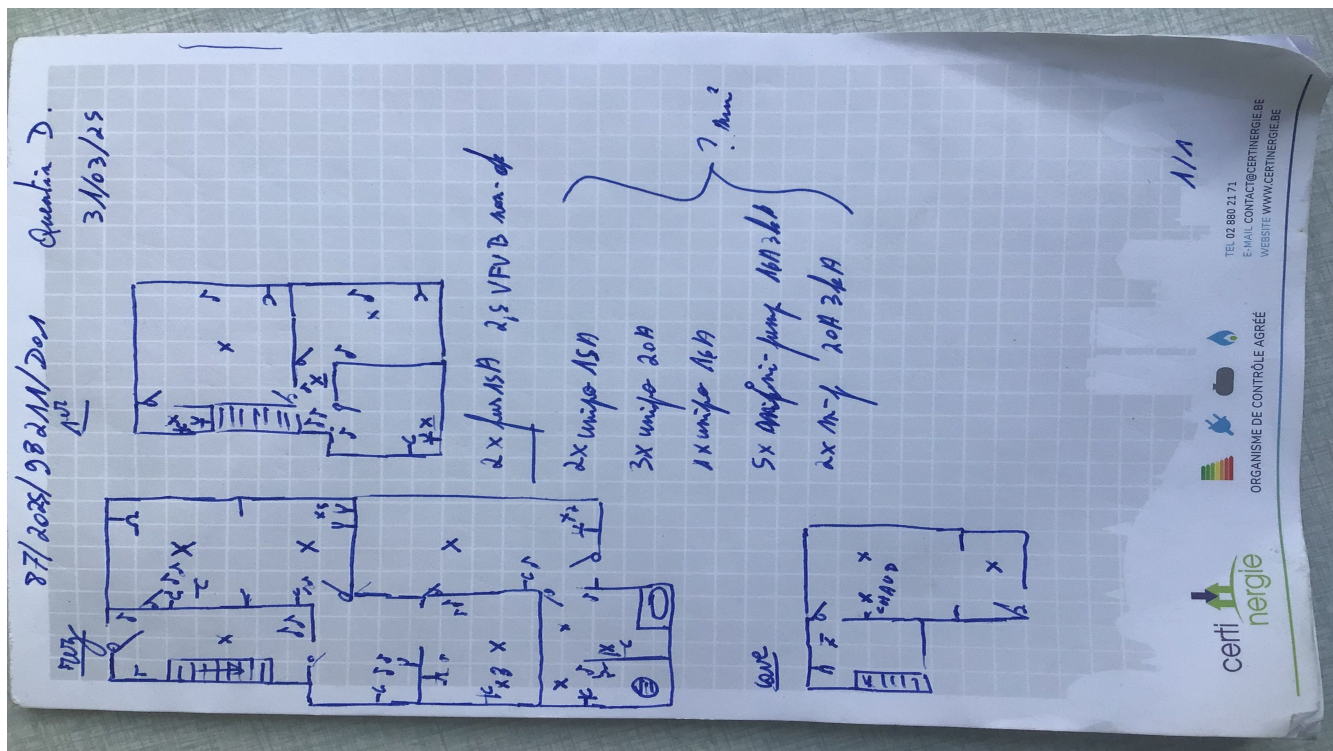 87/2025/98211/D01
Quentin D.
31/03/25
1er
rez
x3
x3
x2
2x fus 15A 2,5 VFVB non-ok
2x unipo 15A
3x unipo 20A
1x unipo 16A
5x 16A 3kA
2x m-p 20A 3kA
? mm²
cave
CHAUD
1/1
certi
nergie
ORGANISME DE CONTRÔLE AGRÉÉ
TEL 02 880 21 71
E-MAIL CONTACT@CERTINERGIE.BE
WEBSITE WWW.CERTINERGIE.BE